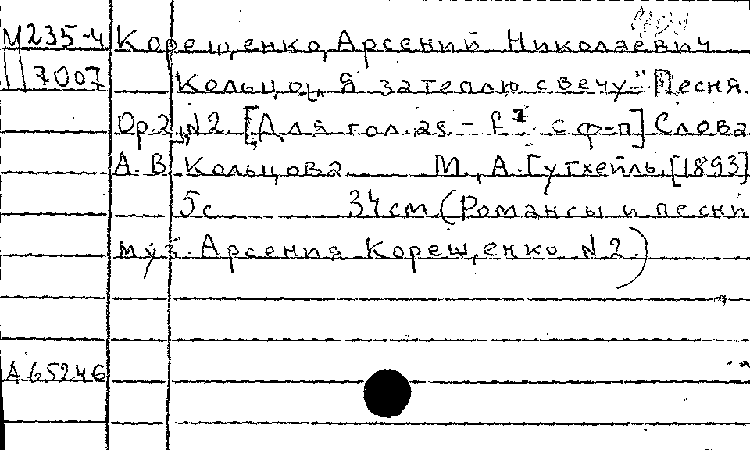 М235-4 Корещенко, Арсений Николаевич
7007 Кольцо. „Я затеплю свечу" Песня.
Op. 2, N2. [Для гол. as - f² с ф-п] Слова
А. В. Кольцова М., А. Гутхейль, [1893]
5с 34см (Романсы и песни
муз. Арсения Корещенко N2.)
А65246